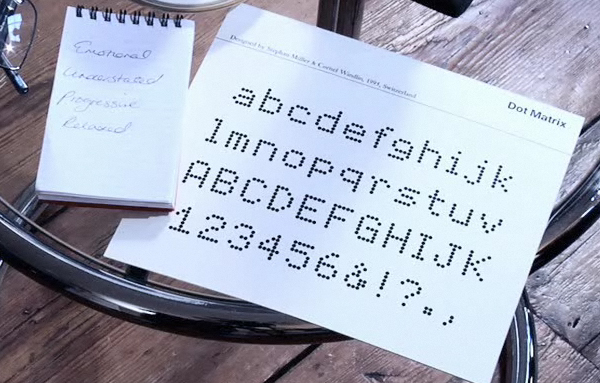 Emotional
Understated
Progressive
Relaxed
Designed by Stephan Müller & Cornel Windlin, 1991, Switzerland
Dot Matrix
abcdefghijk
lmnopqrstuv
ABCDEFGHIJK
123456&!?.,